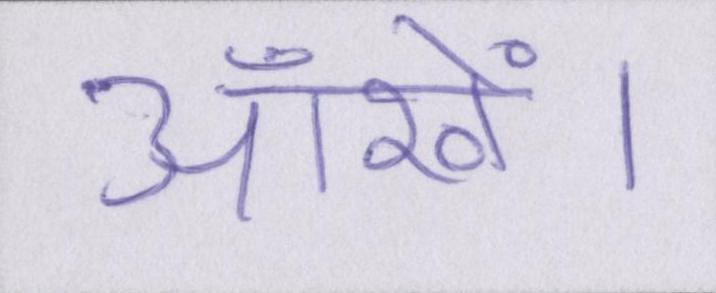 आँखें।